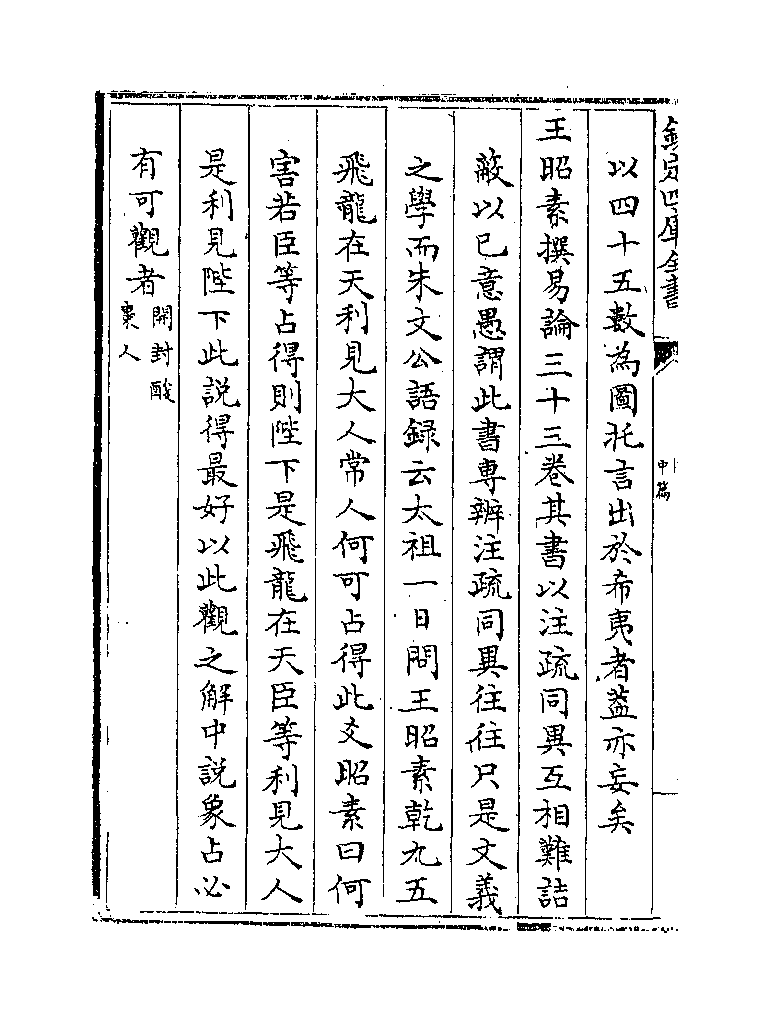 欽定四庫全書
中篇
以四十五數為圖托言出於希夷者葢亦妄矣
王昭素撰易論三十三卷其書以注疏同異互相難詰
蔽以已意愚謂此書専辨注疏同異往往只是文義
之學而朱文公語録云太祖一日問王昭素乾九五
飛龍在天利見大人常人何可占得此爻昭素曰何
害若臣等占得則陛下是飛龍在天臣等利見大人
是利見陛下此説得最好以此觀之解中説象占必
有可觀者
開封酸
棗人